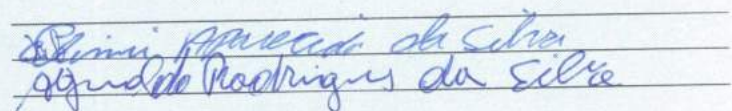 Aparecida da Silva
Agnaldo Rodrigues da Silva